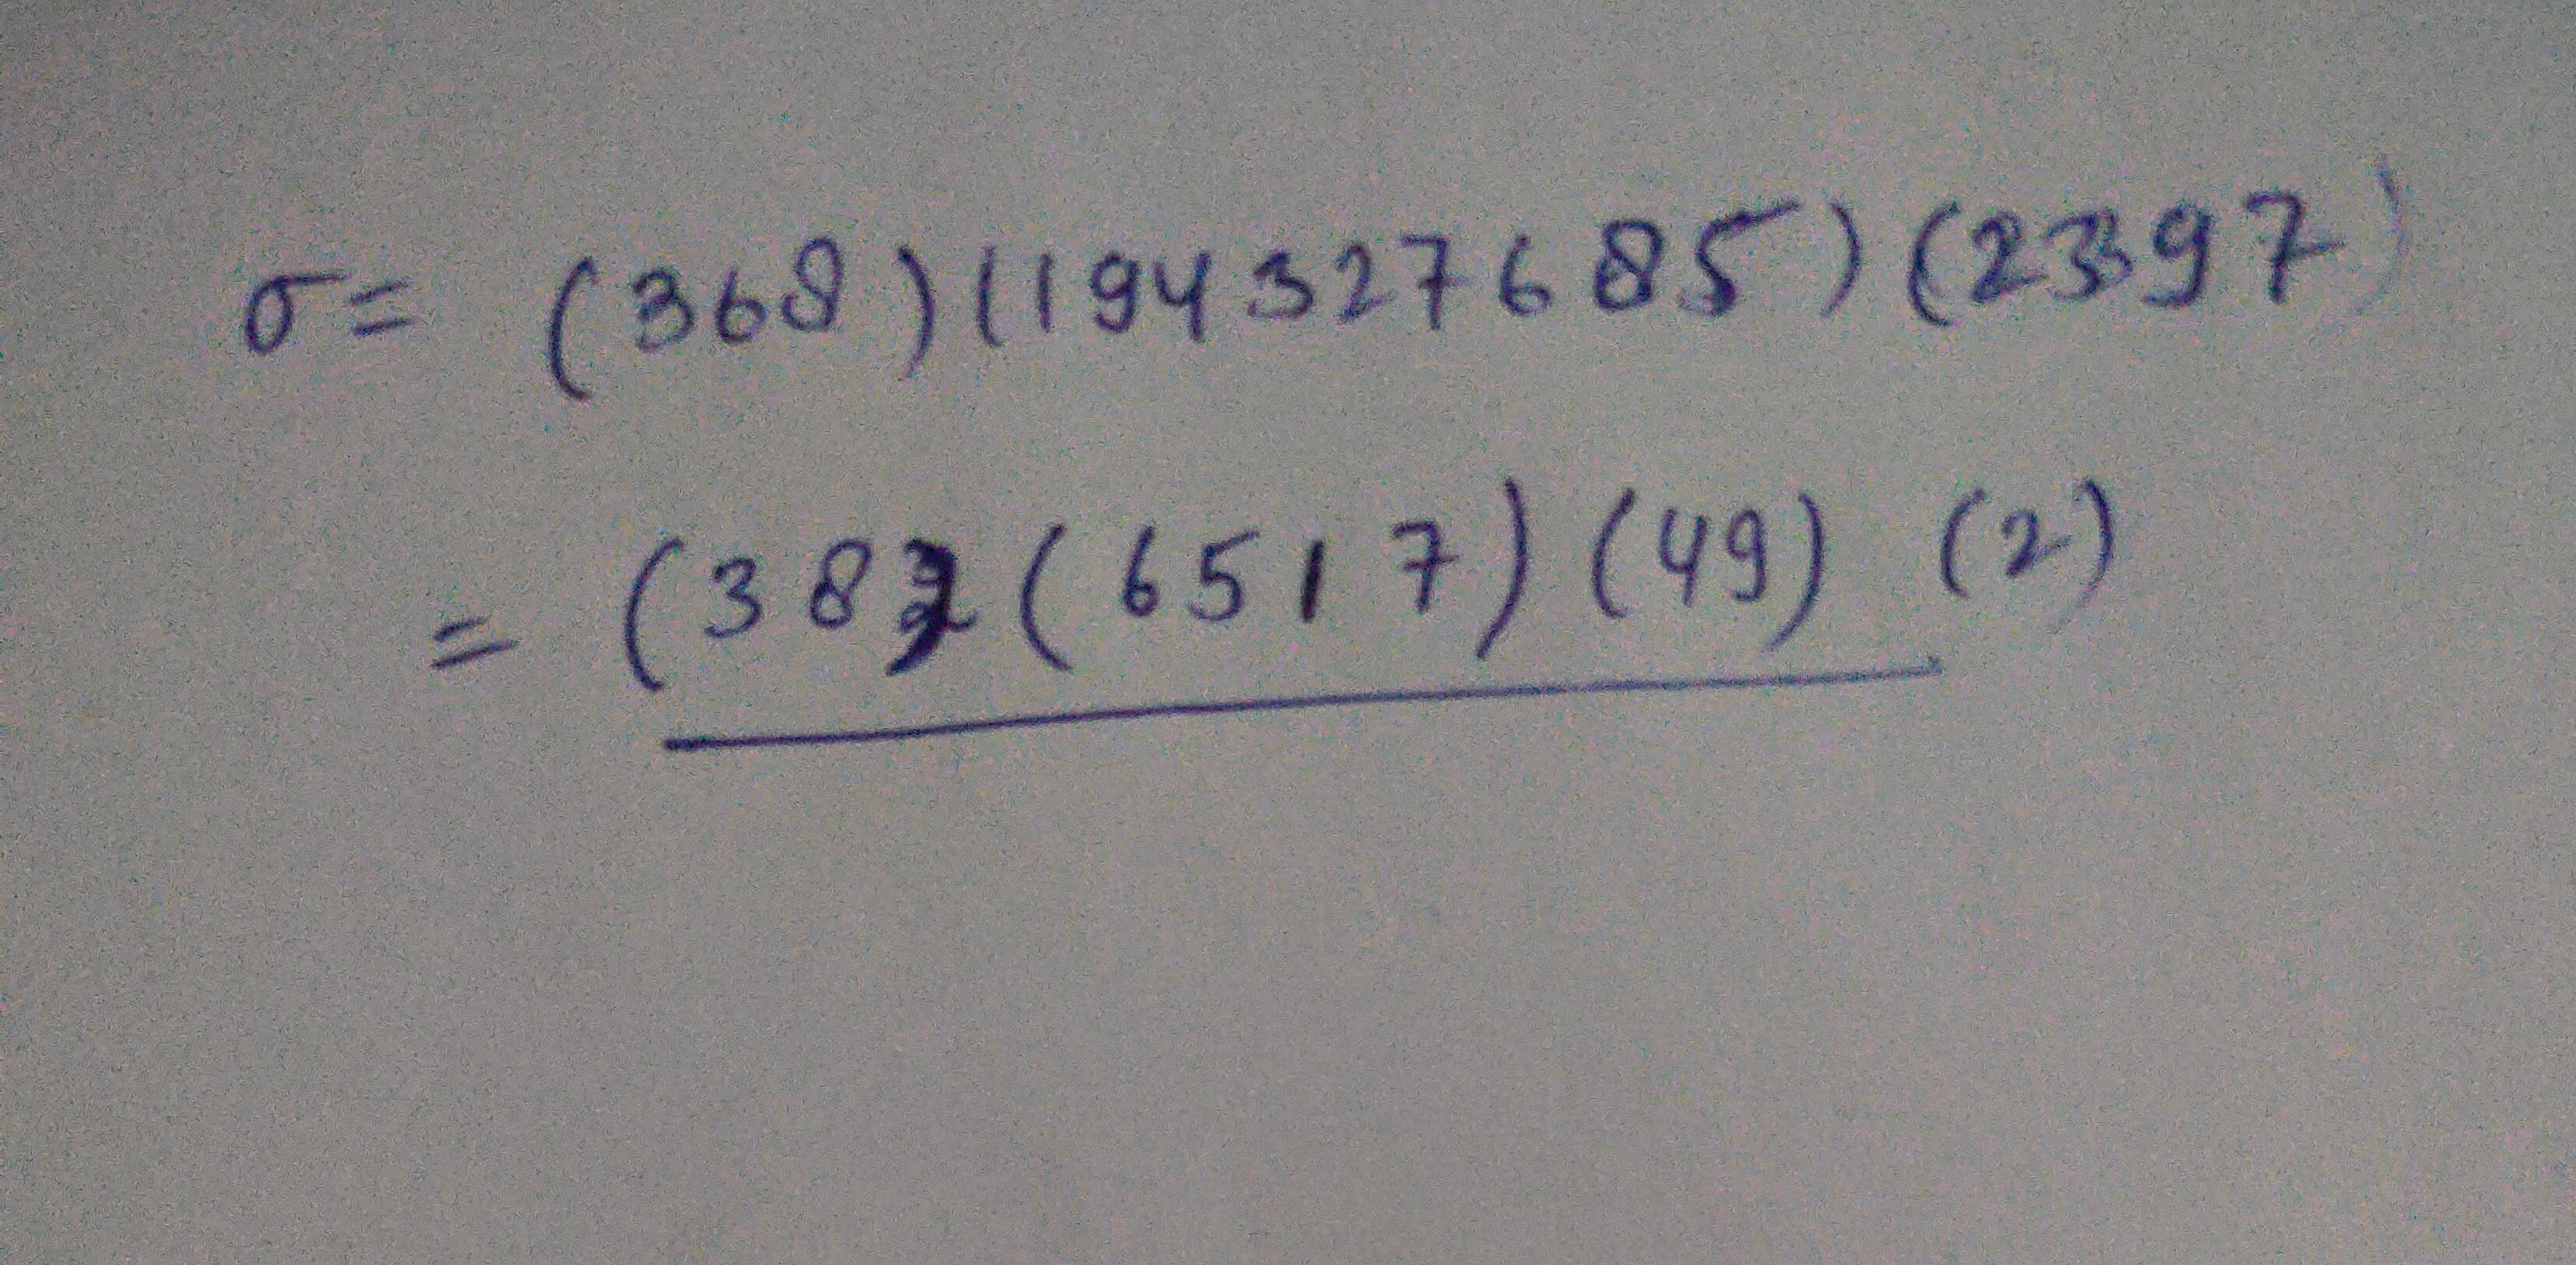 σ = (368)(194327685)(2397)
= (38) (6517)(49) (2)